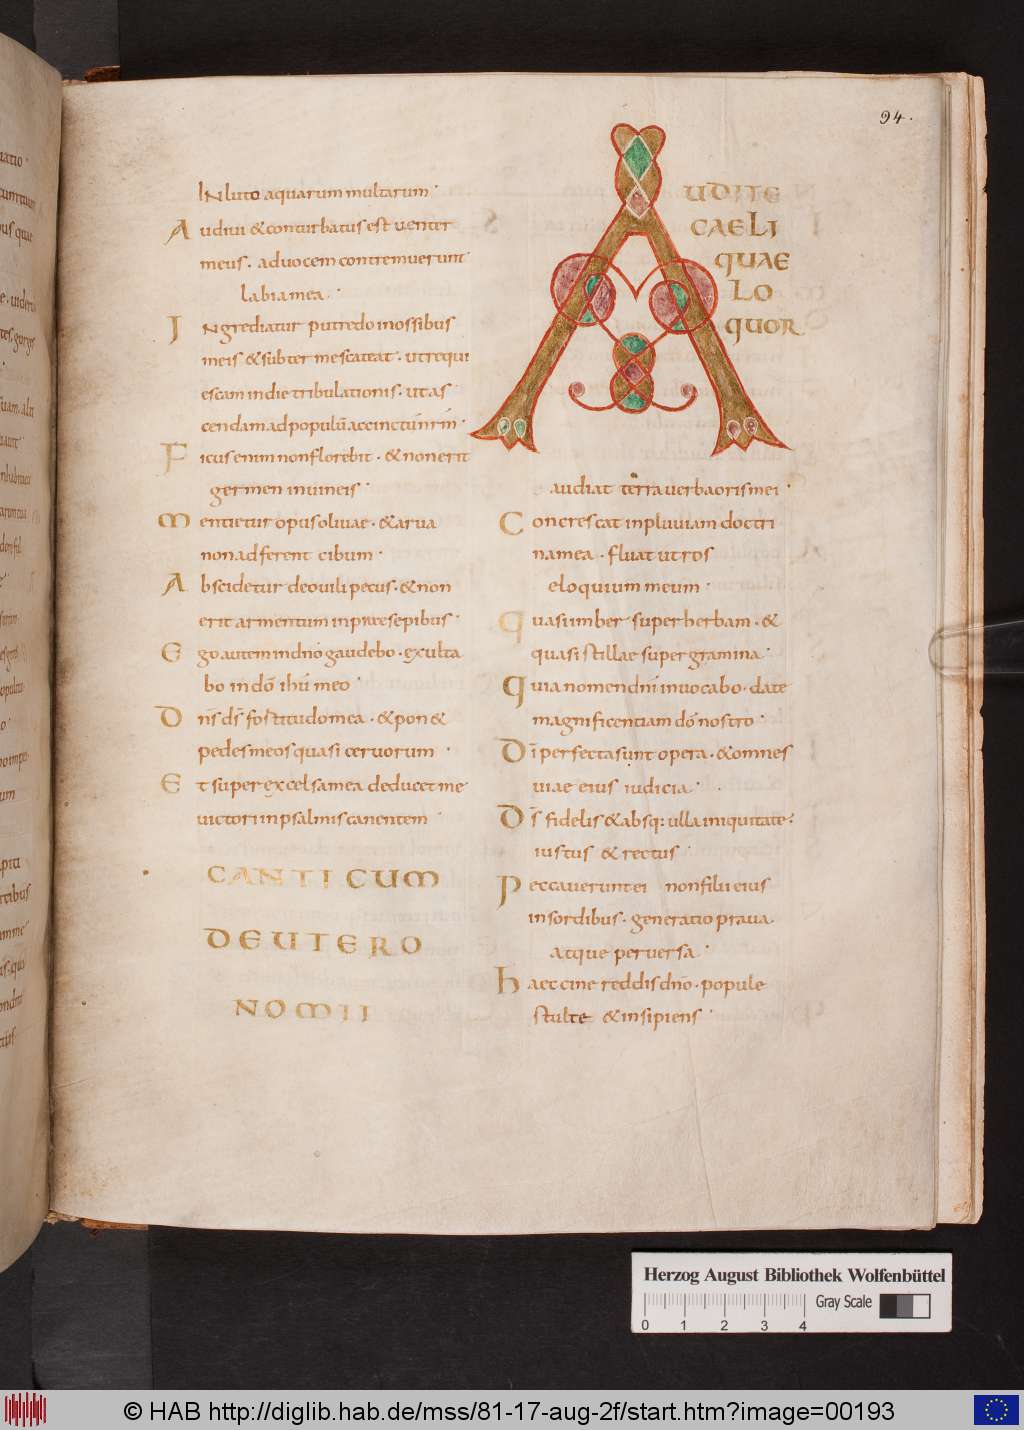 94.
IN luto aquarum multarum·
Audiui & conturbatus est uenter
meus· aduocem contremuerunt
labia mea·
Ingrediatur putredo in ossibus
meis & subter me scateat· ut requi
escam in die tribulationis· ut as
cendam ad populū accinctū nr̄m·
Ficus enim non florebit· & non erit
germen in uineis·
Mentietur opus oliuae· & arua
non adferent cibum·
Abscidetur de ouili pecus· & non
erit armentum in praesepibus·
Ego autem in dnō gaudebo· exulta
bo in dō ihū meo·
Dn̄s ds̄ fortitudo mea· & pon&
pedes meos quasi ceruorum·
Et super excelsa mea deducet me
uictori in psalmis canentem·
CANTICUM
DEUTERO
NOMII
AUDITE
CAELI
QUAE
LO
QUOR
audiat terra uerba oris mei·
Concrescat in pluuiam doctri
na mea· fluat ut ros
eloquium meum·
Quasi imber super herbam· &
quasi stillae super gramina·
Quia nomen dnī inuocabo· date
magnificentiam dō nostro·
Dī perfecta sunt opera· & omnes
uiae eius iudicia·
Ds̄ fidelis & absq: ulla iniquitate·
iustus & rectus·
Peccauerunt ei non filii eius
in sordibus· generatio praua
atque peruersa·
Haeccine reddis dnō· popule
stulte & insipiens·
Herzog August Bibliothek Wolfenbüttel
Gray Scale
0 1 2 3 4
© HAB http://diglib.hab.de/mss/81-17-aug-2f/start.htm?image=00193